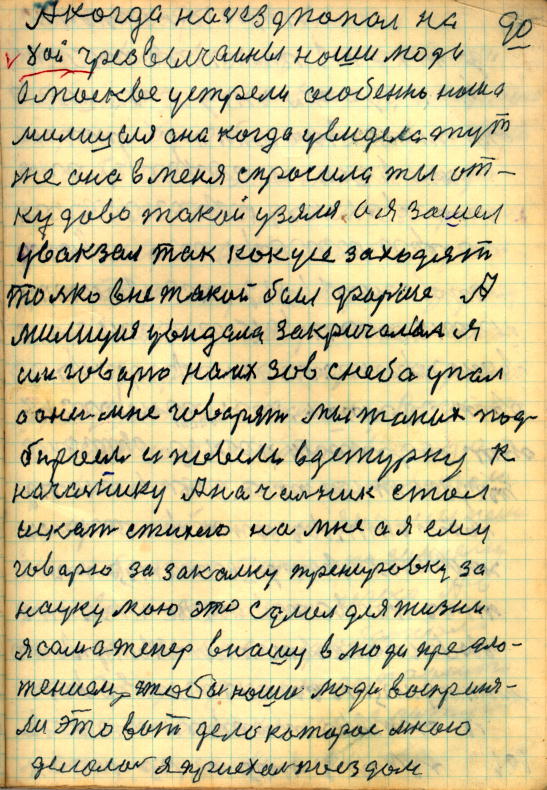 А когда на уездпопал на
90
хой чрезвычайны ноши моди
В москве устрели особенно ноша
милицыя она когда увидела тут
же она вменя спросила ты от-
кудово такой узяля а я зашел
увакзал так как усе заходят
толко вне такой был форме А
милиция увидала закричала а я
им говарю на их зов снеба упал
а они мне говарят мы таких под-
бираем и повели вдетурку к
началнику А началник стал
искат стихею на мне а я ему
говарю за закалку тренировку за
науку мою это сдмел для жизни
я сам а тепер внашу в моди предло-
жением чтобы ноши моди восприня-
ли это вот дело которое мною
делалос я приехал поездом